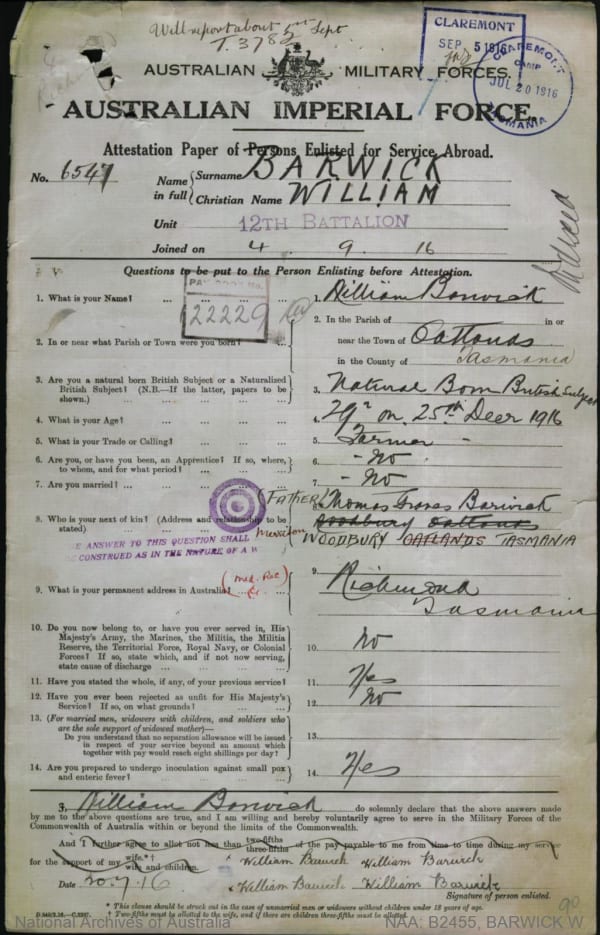 Will report about 5th Sept
T. 3782
CLAREMONT
SEP 5 1916
CLAREMONT
CAMP
JUL 20 1916
TASMANIA
AUSTRALIAN MILITARY FORCES.
AUSTRALIAN IMPERIAL FORCE.
Attestation Paper of Persons Enlisted for Service Abroad.
No. 6547
Name in full { Surname BARWICK
Christian Name WILLIAM
Unit 12TH BATTALION
Joined on 4. 9. 16
Questions to be put to the Person Enlisting before Attestation.
PAY BOOK No.
22229
1. What is your Name? ... ... ... ... 1. William Barwick
2. In or near what Parish or Town were you born? ... 2. In the Parish of in or
near the Town of Oatlands
in the County of Tasmania
3. Are you a natural born British Subject or a Naturalized
British Subject? (N.B.—If the latter, papers to be
shown.) ... ... ... ... 3. Natural Born British Subject
4. What is your Age? ... ... ... 4. 29 on 25th Decr 1916
5. What is your Trade or Calling? ... ... ... 5. Farmer -
6. Are you, or have you been, an Apprentice? If so, where,
to whom, and for what period? ... ... ... 6. - No
7. Are you married? ... ... ... ... 7. - No
8. Who is your next of kin? (Address and relationship to be
stated) ... ... ... (Father) Thomas Groves Barwick
Woodbury Oatlands
WOODBURY OATLANDS TASMANIA
E ANSWER TO THIS QUESTION SHALL
CONSTRUED AS IN THE NATURE OF A W
9. What is your permanent address in Australia? ... 9. Richmond
Tasmania
(Med. Rec
10. Do you now belong to, or have you ever served in, His
Majesty's Army, the Marines, the Militia, the Militia
Reserve, the Territorial Force, Royal Navy, or Colonial
Forces? If so, state which, and if not now serving,
state cause of discharge ... ... ... 10. No
11. Have you stated the whole, if any, of your previous service? 11. Yes
12. Have you ever been rejected as unfit for His Majesty's
Service? If so, on what grounds? ... ... 12. No
13. (For married men, widowers with children, and soldiers who
are the sole support of widowed mother)—
Do you understand that no separation allowance will be issued
in respect of your service beyond an amount which
together with pay would reach eight shillings per day? 13.
14. Are you prepared to undergo inoculation against small pox
and enteric fever? ... ... ... 14. Yes
I, William Barwick do solemnly declare that the above answers made
by me to the above questions are true, and I am willing and hereby voluntarily agree to serve in the Military Forces of the
Commonwealth of Australia within or beyond the limits of the Commonwealth.
And I further agree to allot not less than two-fifths three-fifths of the pay payable to me from time to time during my service
for the support of my wife.*† wife and children. William Barwick William Barwick
Date 20.7.16 William Barwick William Barwick
Signature of person enlisted.
* This clause should be struck out in the case of unmarried men or widowers without children under 18 years of age.
† Two-fifths must be allotted to the wife, and if there are children three-fifths must be allotted.
90
National Archives of Australia NAA: B2455, BARWICK W